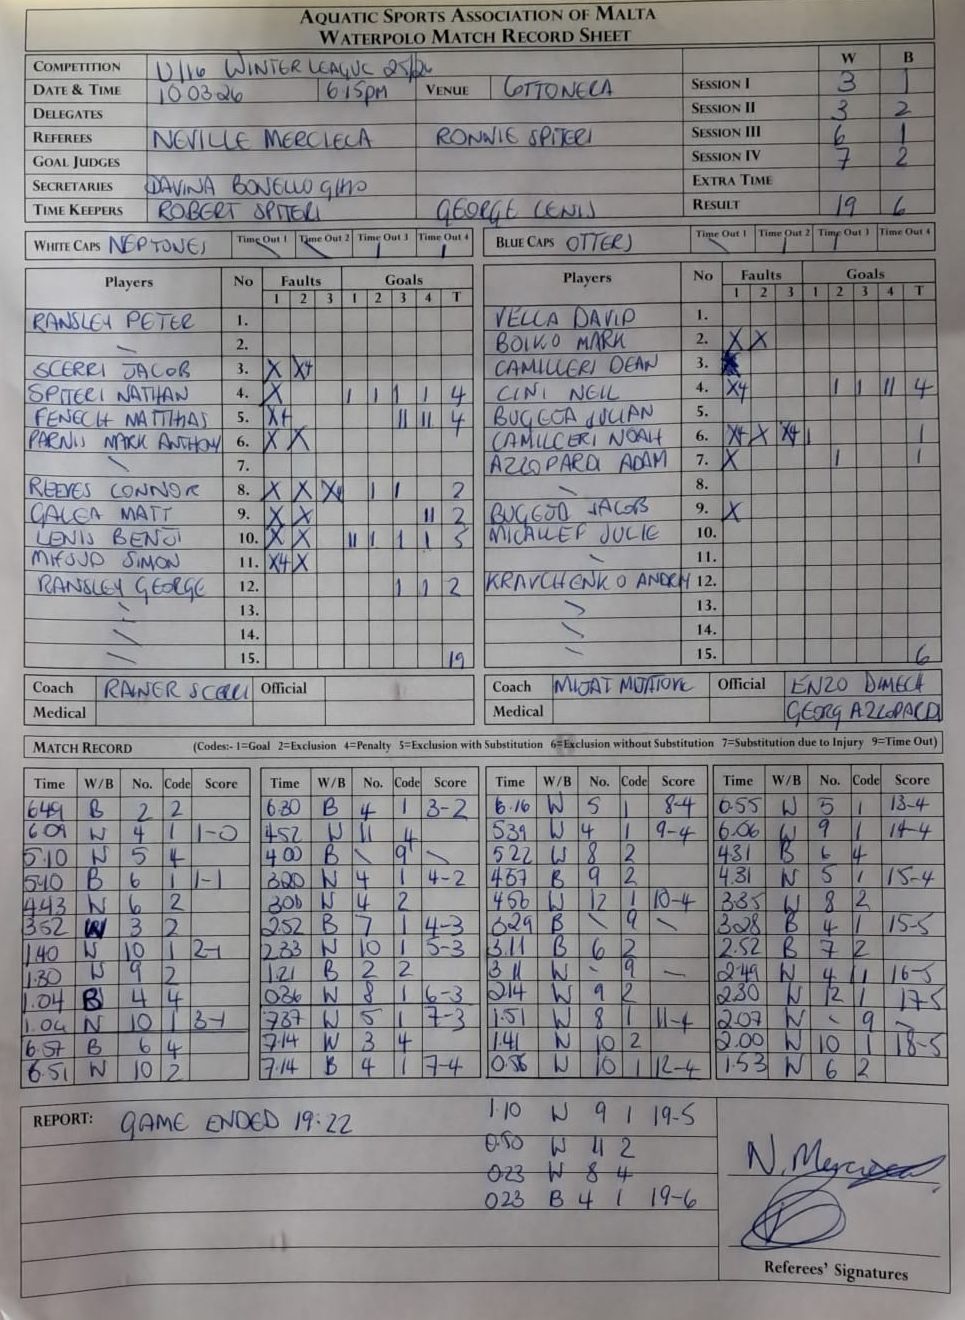 AQUATIC SPORTS ASSOCIATION OF MALTA
WATERPOLO MATCH RECORD SHEET
COMPETITION U/16 WINTER LEAGUE 25/26 W B
DATE & TIME 10 03 26 6 15pm VENUE COTTONERA SESSION I 3 1
DELEGATES SESSION II 3 2
REFEREES NEVILLE MERCIECA RONNIE SPITERI SESSION III 6 1
GOAL JUDGES SESSION IV 7 2
SECRETARIES DAVINA BONELLO EXTRA TIME
TIME KEEPERS ROBERT SPITERI GEORGE LENIS RESULT 19 6
WHITE CAPS NEPTUNES Time Out 1 Time Out 2 Time Out 3 Time Out 4
BLUE CAPS OTTERS Time Out 1 Time Out 2 Time Out 3 Time Out 4
Players No Faults Goals
1 2 3 1 2 3 4 T
RANSLEY PETER 1.
2.
SCERRI JACOB 3. X X4
SPITERI NATHAN 4. X 1 1 1 1 4
FENECH MATTHIAS 5. X4 11 11 4
PARNIS MARK ANTHONY 6. X X
7.
REEVES CONNOR 8. X X X4 1 1 2
GALEA MATT 9. X X 11 2
LENIS BENJI 10. X X 11 1 1 1 5
MIFSUD SIMON 11. X4 X
RANSLEY GEORGE 12. 1 1 2
13.
14.
15. 19
Players No Faults Goals
1 2 3 1 2 3 4 T
VELLA DAVID 1.
BOIKO MARK 2. X X
CAMILLERI DEAN 3.
CINI NEIL 4. X4 1 1 11 4
BUGEJA JULIAN 5.
CAMILLERI NOAH 6. X4 X X4 1 1
AZZOPARDI ADAM 7. X 1 1
8.
BUGEJA JACOB 9. X
MICALLEF JULIE 10.
11.
KRAVCHENKO 12.
13.
14.
15. 6
Coach RAINER SCERRI Official
Medical
Coach Official ENZO DIMECH
Medical GEORG AZZOPARDI
MATCH RECORD (Codes:- 1=Goal 2=Exclusion 4=Penalty 5=Exclusion with Substitution 6=Exclusion without Substitution 7=Substitution due to Injury 9=Time Out)
Time W/B No. Code Score
6.49 B 2 2
6.09 W 4 1 1-0
5.10 W 5 4
B 6 1 1-1
4.43 W 6 2
3.52 W 3 2
1.40 W 10 1 2-1
1.30 W 9 2
1.04 B 4 4
1.04 W 10 1 3-1
6.57 B 6 4
6.51 W 10 2
Time W/B No. Code Score
6.30 B 4 1 3-2
4.52 W 11 4
4.00 B \ 9 \
3.20 W 4 1 4-2
3.06 W 4 2
2.52 B 7 1 4-3
2.33 W 10 1 5-3
1.21 B 2 2
0.36 W 8 1 6-3
7.37 W 5 1 7-3
7.14 W 3 4
7.14 B 4 1 7-4
Time W/B No. Code Score
6.16 W 5 1 8-4
5.39 W 4 1 9-4
5.22 W 8 2
4.57 B 9 2
4.56 W 12 1 10-4
3.29 B \ 9 \
3.11 B 6 2
3.11 W - 9 -
2.14 W 9 2
1.51 W 8 1 11-4
1.41 W 10 2
0.56 W 10 1 12-4
Time W/B No. Code Score
0.55 W 5 1 13-4
6.06 W 9 1 14-4
4.31 B 6 4
4.31 W 5 1 15-4
3.35 W 8 2
3.28 B 4 1 15-5
2.52 B 7 2
2.49 W 4 1 16-5
2.30 W 12 1 17-5
2.07 W - 9 -
2.00 W 10 1 18-5
1.53 W 6 2
REPORT: GAME ENDED 19:22
1.10 W 9 1 19-5
0.50 W 11 2
0.23 W 8 4
0.23 B 4 1 19-6
N. Mercieca
Referees' Signatures